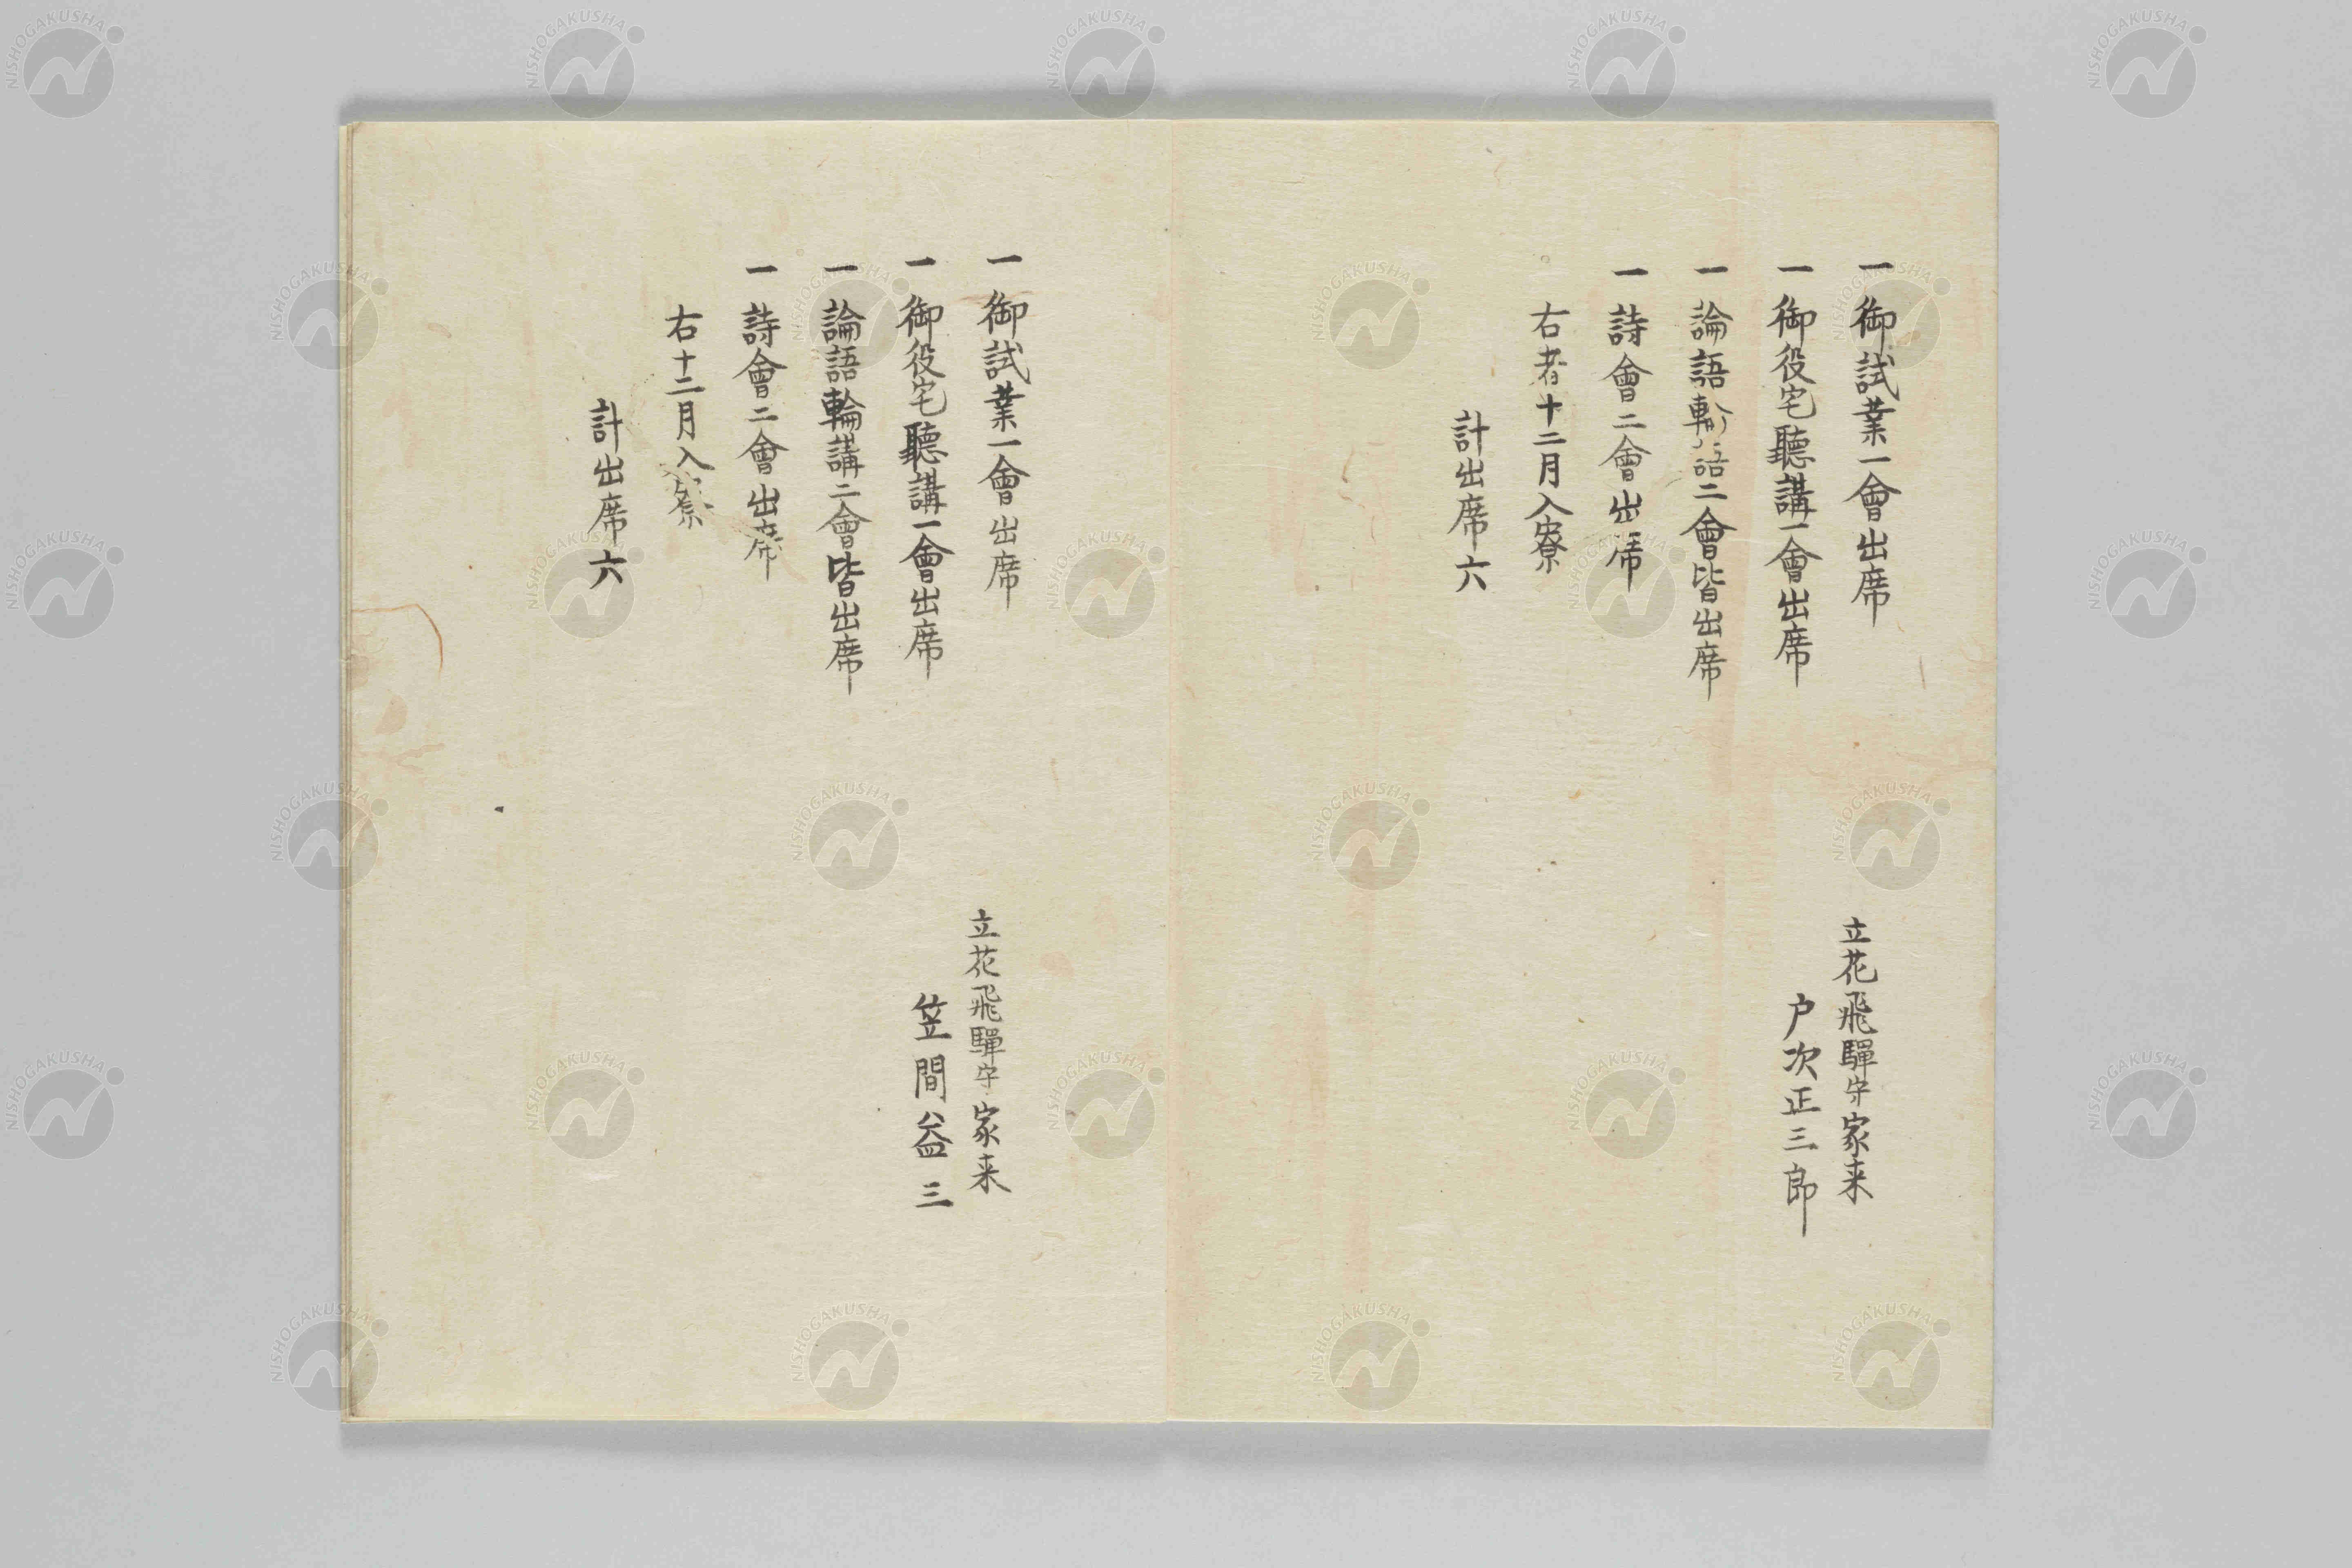 立花飛驒守家来
戸次正三郎
一御試業一會出席
一御役宅聽講一會出席
一論語輪二會皆出席
一詩會二會出席
右者十二月入寮
計出席六
立花飛驒守家来
笠間益三
一御試業一會出席
一御役宅聽講一會出席
一論語輪講二會皆出席
一詩會二會出席
右十二月入寮
計出席六
NISHOGAKUSHA